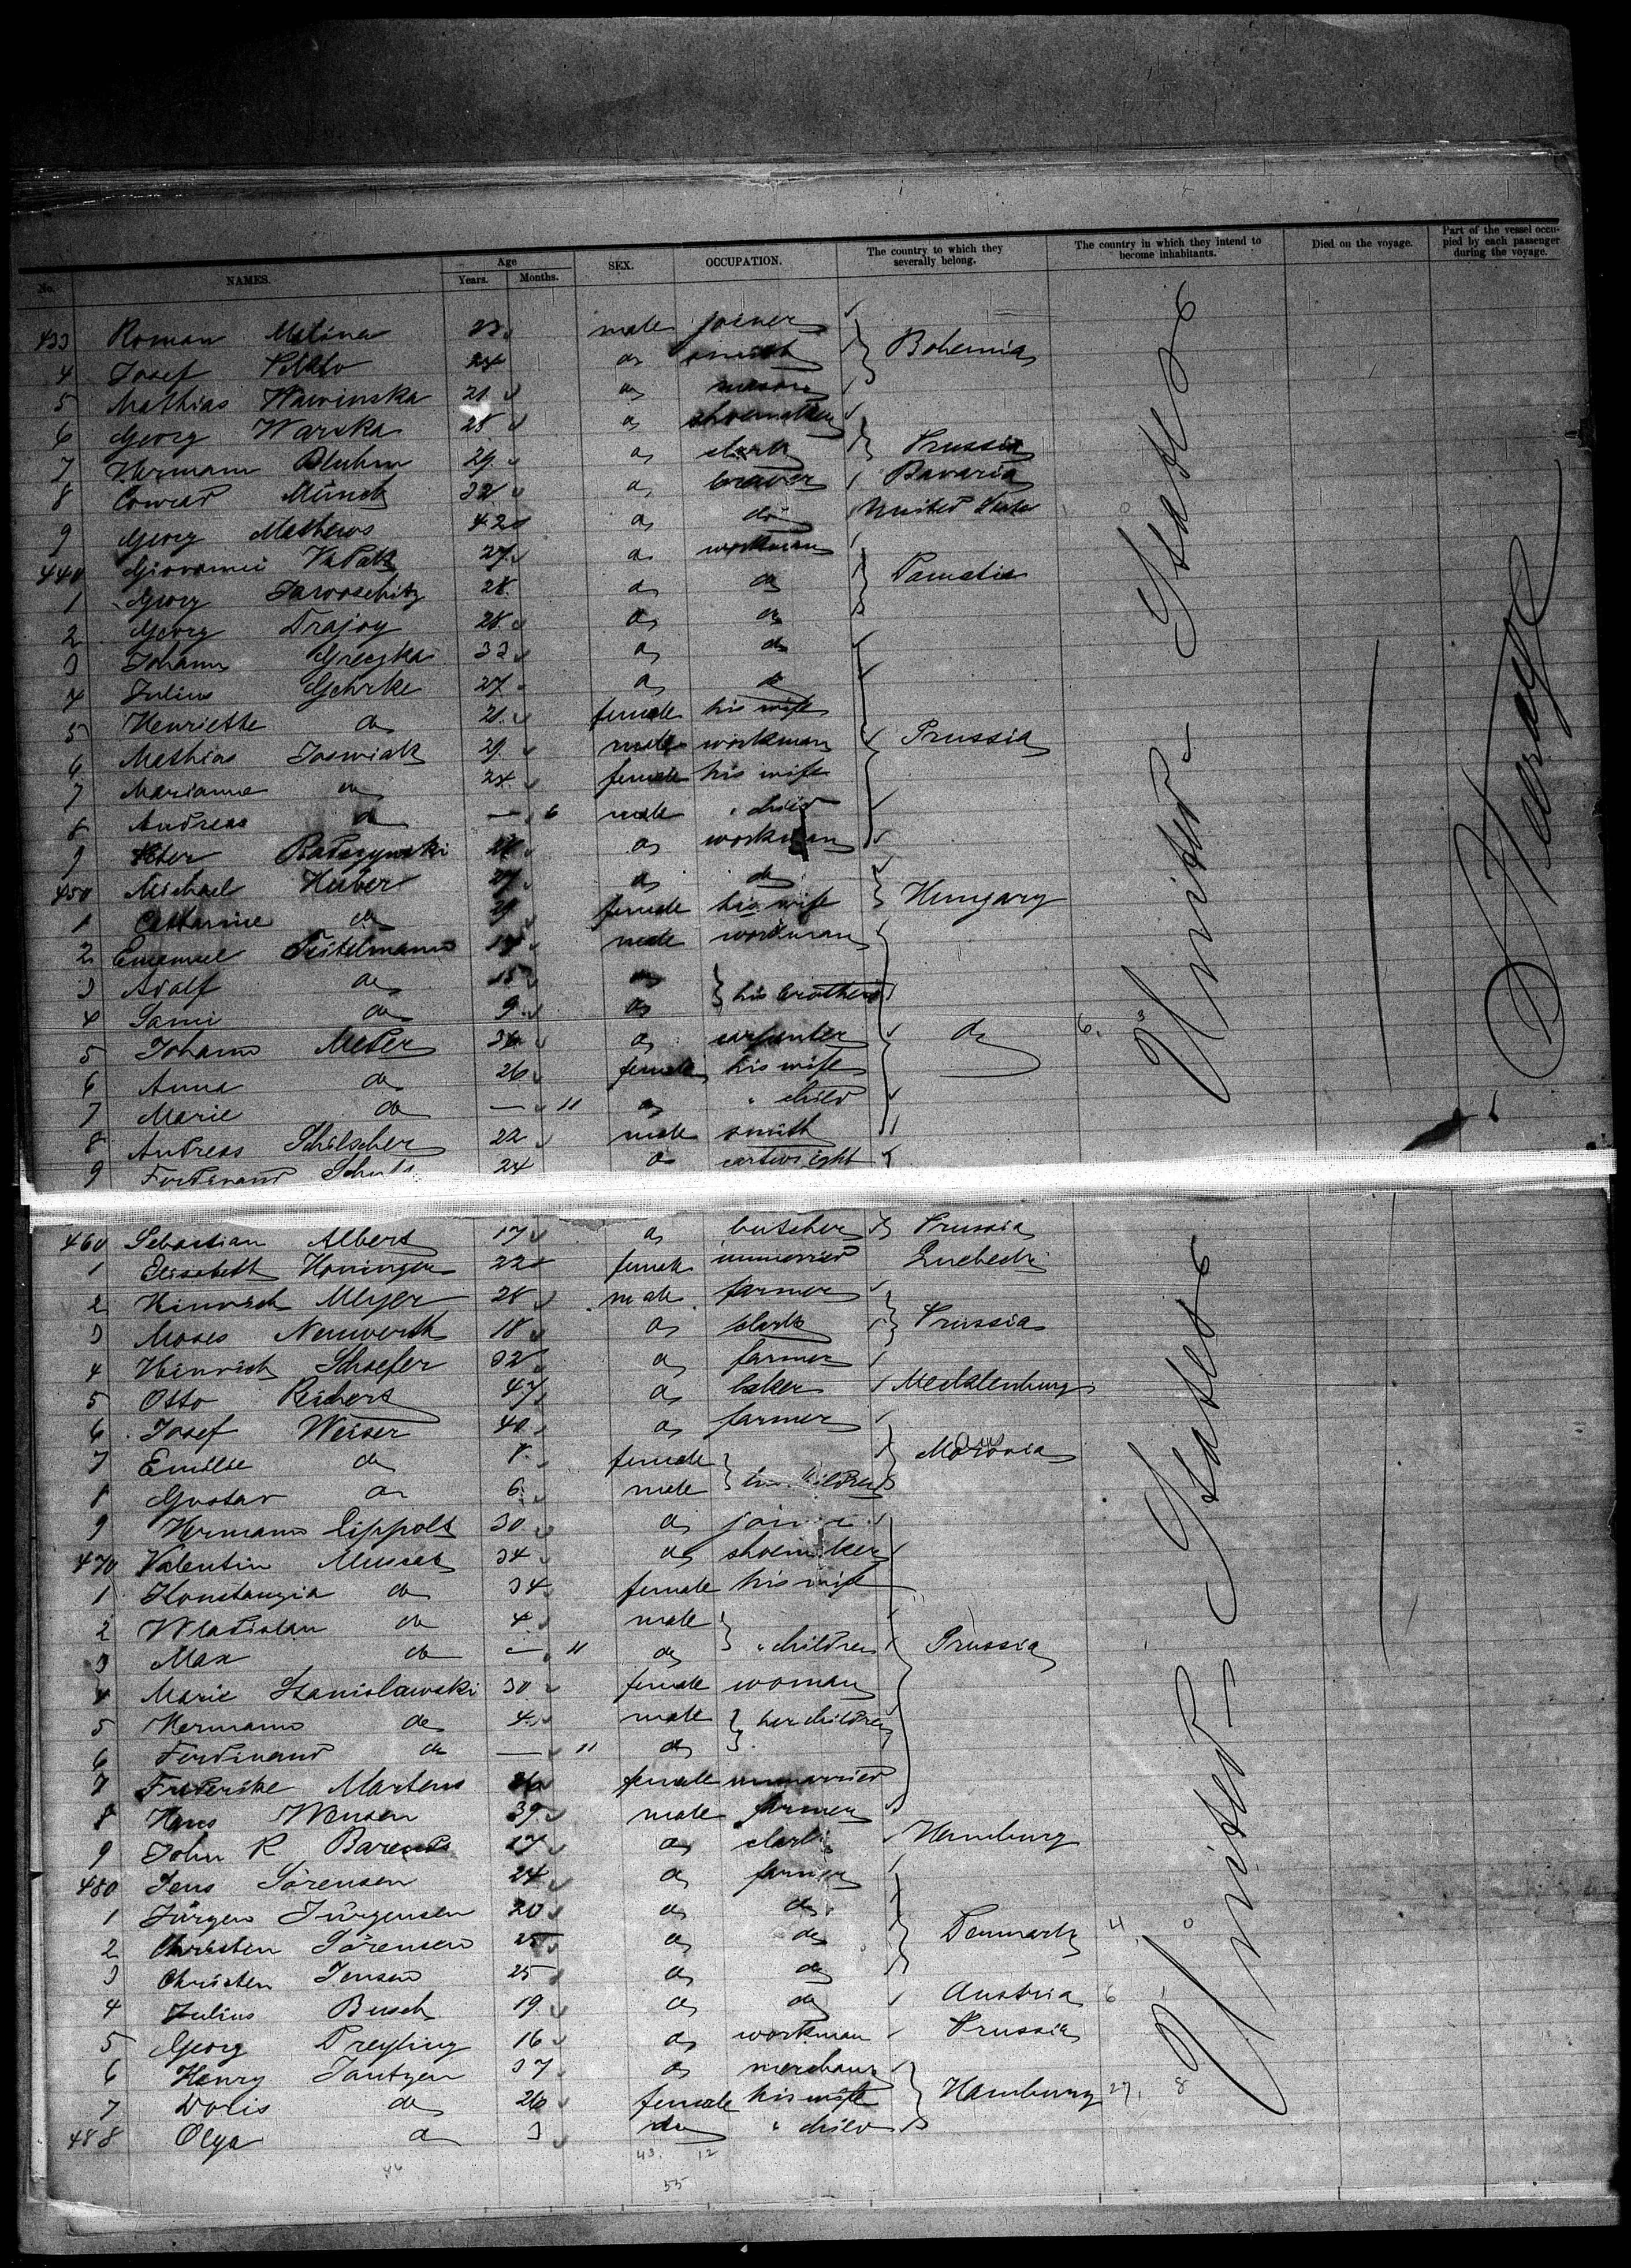 No. NAMES. Age Years. Months. SEX. OCCUPATION. The country to which they severally belong. The country in which they intend to become inhabitants. Died on the voyage. Part of the vessel occupied by each passenger during the voyage.
433 Roman 23 male joiner
4 Josef 24 do smith Bohemia
5 Mathias Wawinska 21 do mason
6 Georg Warska 28 do shoemaker
7 Hermann Bluhm 29 do clerk Prussia
8 Conrad Münch 32 do brewer Bavaria
9 Georg Mathews 42 do do United States
440 Giovannii 27 do workman
1 Georg Jawoschitz 28 do do
2 Georg Drajoy 28 do do
3 Johann 33 do do
4 Julius Gehrke 27 do do
5 Henriette do 21 female his wife
6 Mathias Joswiak 29 male workman Prussia
7 Marianna do 24 female his wife
8 Andreas do — 6 male " child
9 Peter do workman
450 Michael Huber 27 do do Hungary
1 Catharine do 29 female his wife
2 Emanuel Teitelmann male workman
3 Adolf do 15 do his brothers
4 Sami do 9 do
5 Johann 34 do carpenter do 6. 3
6 Anna do 26 female his wife
7 Marie do — 11 do " child
8 Andreas Schilscher 22 male smith
9 Ferdinand 24 do cartwright
460 Sebastian Albert 17 do butcher Prussia
1 Elisabeth Honinger 22 female unmarried
2 Hinrich Meyer 28 male farmer
3 Moses Neuwerth 18 do clerk Prussia
4 Hinrich Schaefer 32 do farmer
5 Otto Reichert 47 do baker Mecklenburg
6 Josef Weiser 40 do farmer
7 Emilie do 8 female Moravia
8 Gustav do 6 male children
9 Hermann Lippolt 30 do joiner
470 Valentin 34 do shoemaker
1 Konstanzia do 34 female his wife
2 Wladislau do 4 male
3 Max do — 11 do " children Prussia
4 Marie Stanislawski 30 female woman
5 Hermann do 4 male her children
6 Ferdinand do — 11 do
7 Friderike Martens female unmarried
8 Hans 39 male farmer
9 John R 17 do clerk Hamburg
480 Jens Sörensen 24 do farmer
1 Jürgen Jürgensen 20 do do
2 Christen Sörensen 25 do do Denmark 4 0
3 Christen Jensen 25 do do
4 Julius Busch 19 do do Austria 6 1
5 Georg Dreyling 16 do workman Prussia
6 Henry Jantzen 37 do merchant
7 Doris do 26 female his wife Hamburg 27, 8
488 Olga do 3 do " child
43. 12
46
55
United States
United States
Steerage